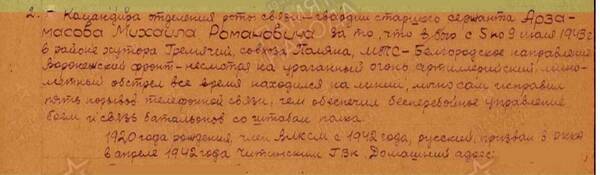 2. - Командира отделения роты связи - гвардии старшего сержанта Арза-
масова Михаила Романовича за то, что в бою с 5 по 9 июля 1943г
в районе хутора Гремячий, совхоза Поляна, МТС - Белгородское направление
Воронежский фронт - несмотря на ураганный огонь артиллерийский, мино-
метный обстрел все время находился на линии, лично сам исправил
пять порывов телефонной связи, чем обеспечил бесперебойное управление
боем и связь батальонов со штабом полка.
1920 года рождения, член ВЛКСМ с 1942 года, русский, призван в РККА
в апреле 1942 года Читинским ГВК. Домашний адрес: